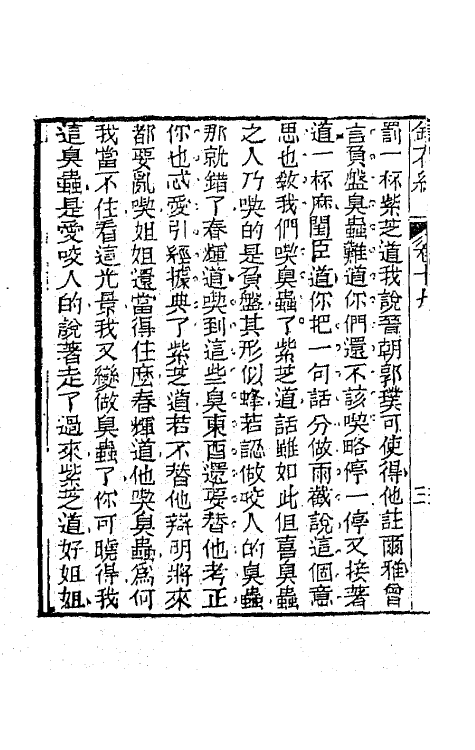 罰一杯紫芝道我說晉朝郭璞可使得他註爾雅曾
言負盤臭蟲難道你們還不該喫略停一停又接著
道一杯麻閨臣道你把一句話分做兩截說這個意
思也敎我們喫臭蟲了紫芝道話雖如此但喜臭蟲
之人乃喫的是負盤其形似蜂若認做咬人的臭蟲
那就錯了春輝道喫到這些臭東西還要替他考正
你也忒愛引經據典了紫芝道若不替他辯明將來
都要亂喫姐姐還當得住麽春輝道他喫臭蟲爲何
我當不住看這光景我又變做臭蟲了你可曉得我
這臭蟲是愛咬人的說著走了過來紫芝道好姐姐